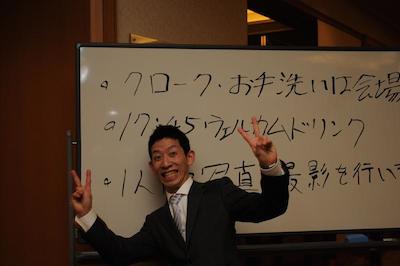 。クローク・お手洗いは会場
。17:45 ウェルカムドリンク
。1人 写真撮影を行い